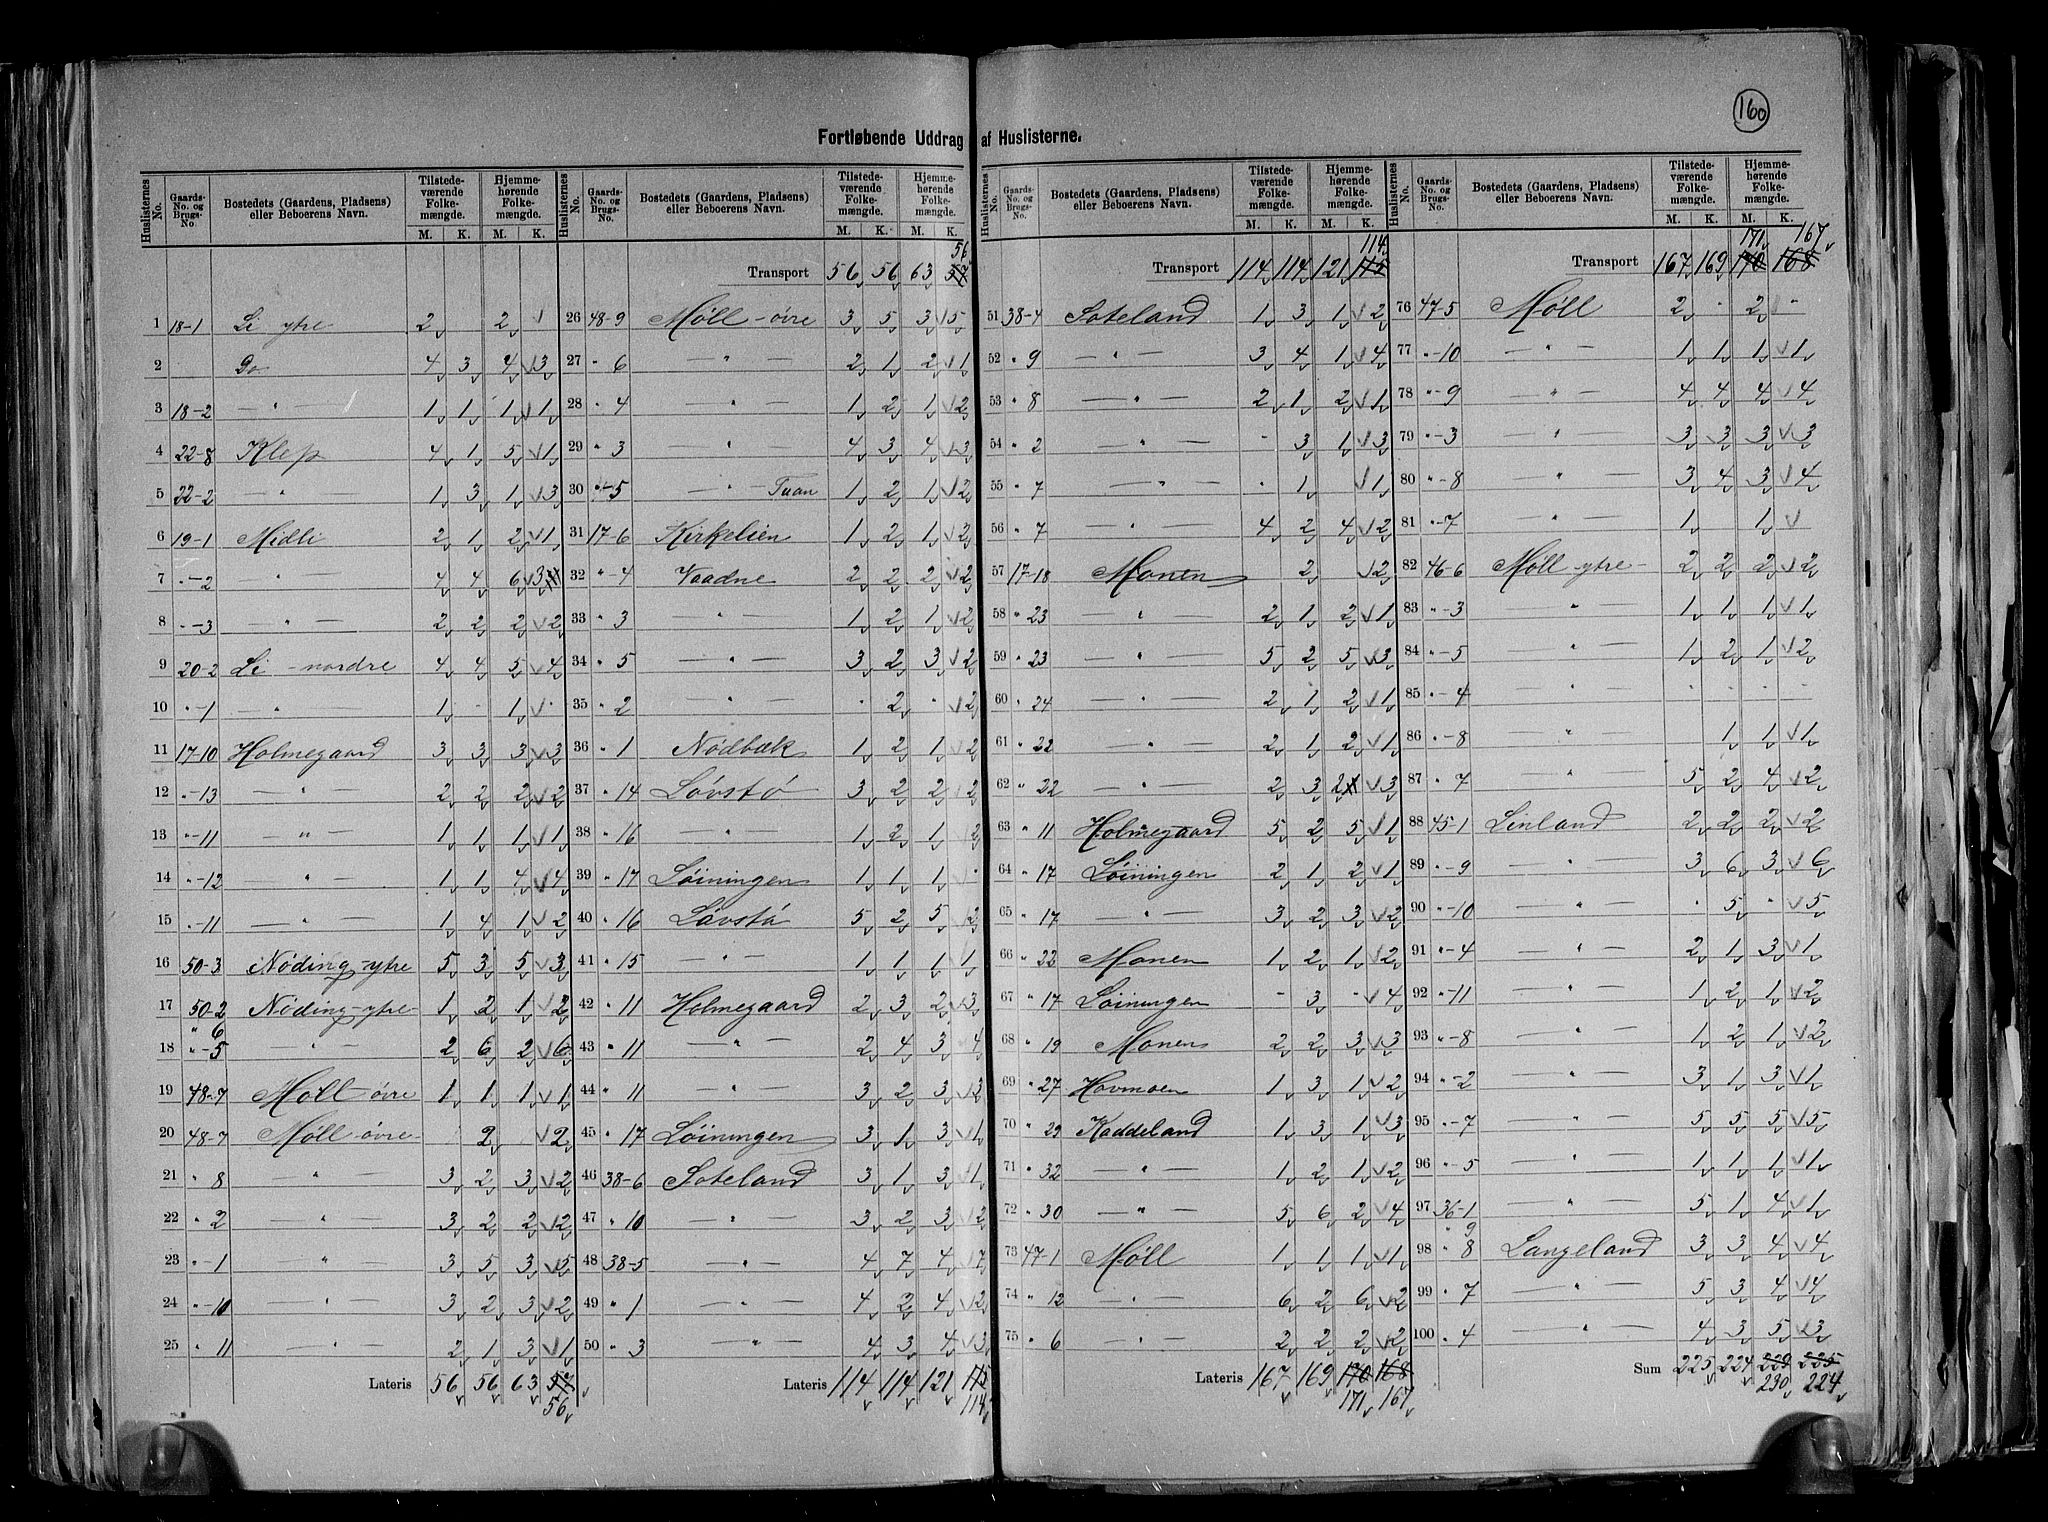 160
Fortløbende Uddrag af Huslisterne.
Huslisternes No. | Gaards-No. og Brugs-No. | Bostedets (Gaardens, Pladsens) eller Beboerens Navn. | Tilstedeværende Folkemængde. M. K. | Hjemmehørende Folkemængde. M. K.
1 18-1 Li ytre 2 2
2 Do 4 3 4 3
3 18-2 — " — 1 1 1 1
4 22-8 Klep 4 1 5 1
5 22-2 — " — 1 3 1 3
6 19-1 Midli 2 1 2 1
7 "-2 — " — 4 4 6 3
8 "-3 — " — 2 2 2 2
9 20-2 Li - nordre 4 4 5 4
10 "-1 — " — 1 - 1 -
11 17-10 Holmegaard 3 3 3 3
12 "-13 — " — 2 2 2 2
13 "-11 — " — 1 1 1 1
14 "-12 — " — 1 1 4 4
15 "-11 — " — 1 4 1 2
16 50-3 Nøding-ytre 5 3 5 3
17 50-2 Nøding-ytre 1 2 1 2
18 " 6 "-5 — " — 2 6 2 6
19 48-7 Møll øvre 1 1 1 1
20 48-7 Møll-øvre 2 2
21 " 8 — " — 3 2 3 2
22 " 2 — " — 3 2 2 2
23 "-1 — " — 3 5 3 5
24 "-10 — " — 3 2 3 2
25 " 11 — " — 2 1 3 1
Lateris 56 56 63 57 56
Huslisternes No. | Gaards-No. og Brugs-No. | Bostedets (Gaardens, Pladsens) eller Beboerens Navn. | Tilstedeværende Folkemængde. M. K. | Hjemmehørende Folkemængde. M. K.
Transport 56 56 63 57 56
26 48-9 Møll - øvre 3 5 3 5
27 " 6 — " — 2 1 2 1
28 " 4 — " — 1 2 1 2
29 " 3 — " — 4 3 4 3
30 "-5 — " Tuan 1 2 1 2
31 17-6 Kirkelien 1 2 1 2
32 " 4 Vaadne 2 2 2 2
33 " 3 — " — 1 2 1 2
34 " 5 — " — 3 2 3 2
35 " 2 — " — - 2 - 2
36 " 1 Nødbæk 1 2 1 2
37 " 14 Løvstø 3 2 2 2
38 " 16 — " — 1 2 1 2
39 " 17 Løiningen 1 1 1 -
40 " 16 Løvstø 5 2 5 2
41 " 15 — " — 1 1 1 1
42 " 11 Holmegaard 2 3 2 3
43 " 11 — " — 2 4 3 4
44 " 11 — " — 3 2 3 2
45 " 17 Løiningen 3 1 3 1
46 38-6 Soteland 3 1 3 1
47 " 10 — " — 3 2 3 2
48 38-5 — " — 4 7 4 7
49 " 1 — " — 4 2 4 2
50 " 3 — " — 4 3 4 3
Lateris 114 114 121 115 114
Huslisternes No. | Gaards-No. og Brugs-No. | Bostedets (Gaardens, Pladsens) eller Beboerens Navn. | Tilstedeværende Folkemængde. M. K. | Hjemmehørende Folkemængde. M. K.
Transport 114 114 121 115 114
51 38-4 Soteland 1 3 1 2
52 " 9 — " — 3 4 1 4
53 " 8 — " — 2 1 2 1
54 " 2 — " — - 3 1 3
55 " 7 — " — - 1 1
56 " 7 — " — 4 2 4 2
57 17-18 Monen 2 2
58 " 23 — " — 2 1 2 1
59 " 23 — " — 5 2 5 3
60 " 24 — " — 2 1 2 1
61 " 22 — " — 2 1 2 1
62 " 22 — " — 2 3 2 3
63 " 11 Holmegaard 5 2 5 1
64 " 17 Løiningen 2 1 2 1
65 " 17 — " — 3 2 3 2
66 " 22 Monen 1 2 1 2
67 " 17 Løiningen - 3 - 4
68 " 19 Monen 2 2 3 3
69 " 27 Hovmoen 1 3 1 2
70 " 29 Kaddeland 1 3 1 3
71 " 32 — " — 1 2 1 2
72 " 30 — " — 5 6 2 4
73 47-1 Møll 1 1 1 1
74 " 12 — " — 6 2 6 2
75 " 6 — " — 2 2 2 2
Lateris 167 169 170 168 171 167
Huslisternes No. | Gaards-No. og Brugs-No. | Bostedets (Gaardens, Pladsens) eller Beboerens Navn. | Tilstedeværende Folkemængde. M. K. | Hjemmehørende Folkemængde. M. K.
171 167
Transport 167 169 170 168
76 47-5 Møll 2 - 2 -
77 "-10 — " — 1 1 1 1
78 "-9 — " — 4 4 4 4
79 "-3 — " — 3 3 3 3
80 "-8 — " — 3 4 3 4
81 "-7 — " — 1 1
82 46-6 Møll-ytre 2 2 2 2
83 "-3 — " — 1 1 1 1
84 "-5 — " — 1 2 1 2
85 "-4 — " — - - - -
86 "-8 — " — 1 1 1
87 " 7 — " — 5 2 4 2
88 45-1 Linland 2 2 2 2
89 "-9 — " — 3 6 3 6
90 "-10 — " — - 5 - 5
91 "-4 — " — 2 1 3 1
92 "-11 — " — 1 2 1 2
93 "-8 — " — 1 2 1 2
94 "-2 — " — 3 1 3 1
95 "-7 — " — 5 5 5 5
96 "-5 — " — 1 1 1 1
97 36-1 — " — 5 1 4 1
98 " 9 " 8 Langeland 3 3 4 4
99 " 7 — " — 5 3 4 4
100 " 4 — " — 4 3 5 3
Sum 225 224 229 225
230 224